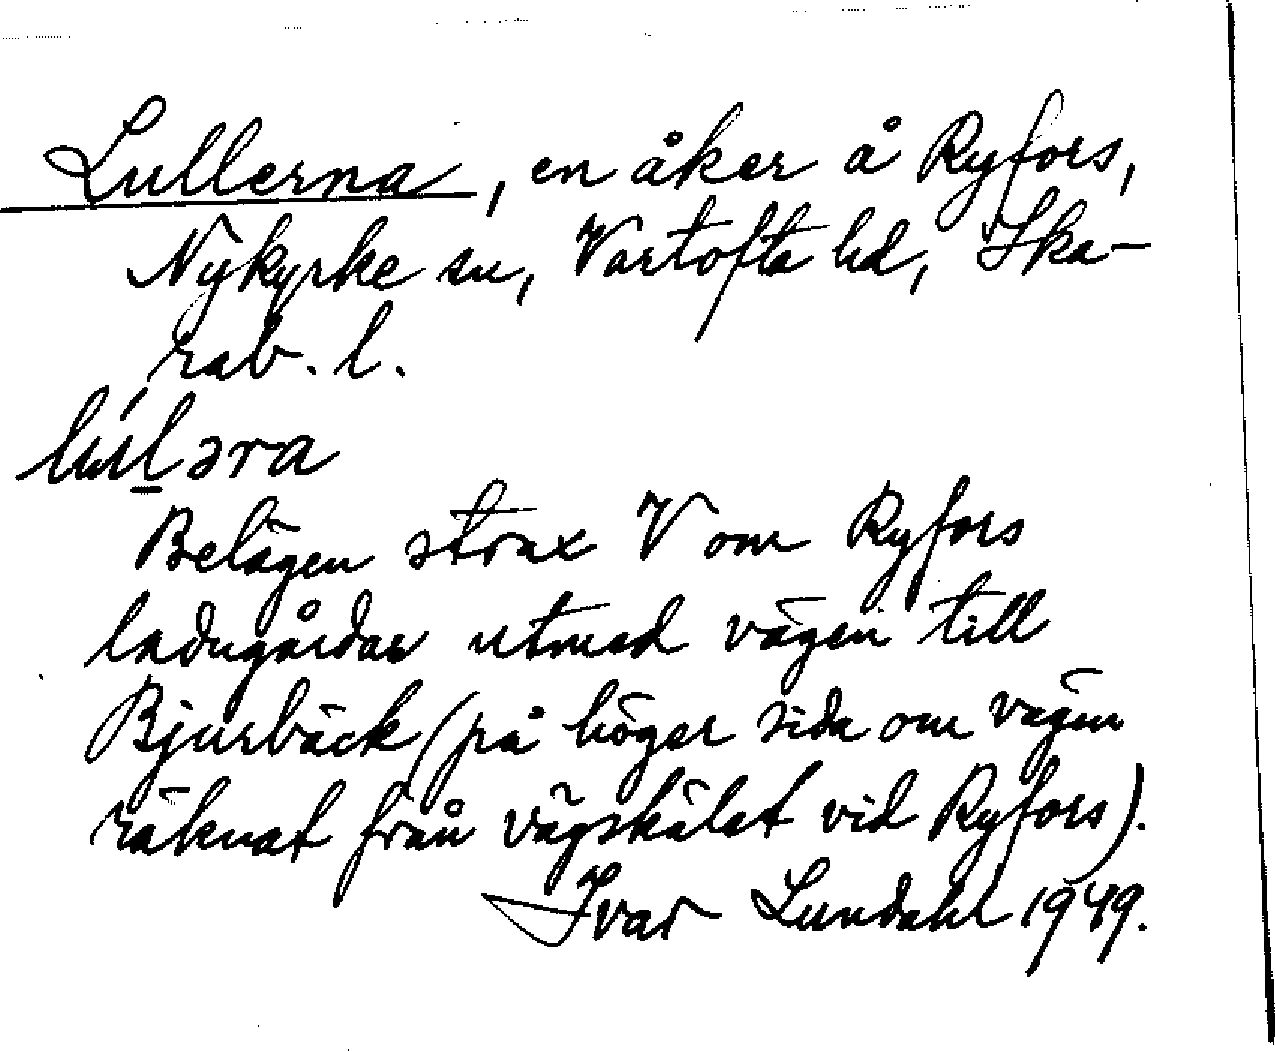 Lullerna, en åker å Ryfors,
Nykyrke sn, Vartofta hd, Ska-
rab. l.
lúl̲əra
Belägen strax V om Ryfors
ladugårdar utmed vägen till
Bjurbäck (på höger sida om vägen
räknat från vägskälet vid Ryfors).
Ivar Lundahl 1949.